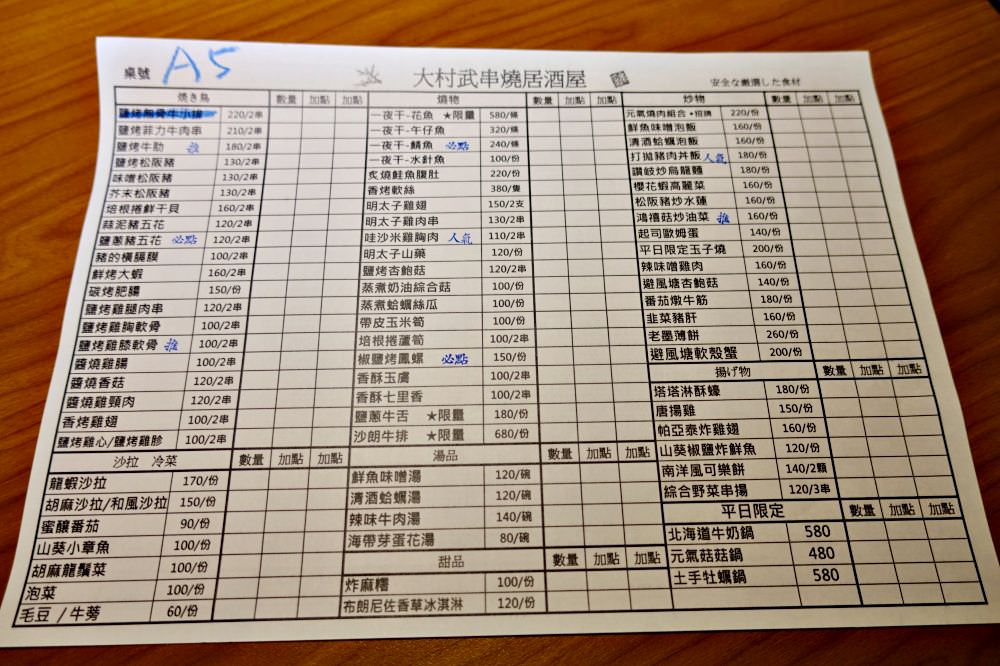 桌號 A5 大村武串燒居酒屋 安全な厳選した食材
焼き鳥 數量 加點 加點
鹽烤無骨牛小排 220/2串
鹽烤菲力牛肉串 210/2串
鹽烤牛肋 推 180/2串
鹽烤松阪豬 130/2串
味噌松阪豬 130/2串
芥末松阪豬 130/2串
培根捲鮮干貝 160/2串
蒜泥豬五花 120/2串
鹽蔥豬五花 必點 120/2串
豬的橫膈膜 100/2串
鮮烤大蝦 160/2串
碳烤肥腸 150/份
鹽烤雞腿肉串 120/2串
鹽烤雞胸軟骨 100/2串
鹽烤雞膝軟骨 推 100/2串
醬燒雞腸 100/2串
醬燒香菇 120/2串
醬燒雞頸肉 120/2串
香烤雞翅 100/2串
鹽烤雞心/鹽烤雞胗 100/2串
沙拉 冷菜 數量 加點 加點
龍蝦沙拉 170/份
胡麻沙拉/和風沙拉 150/份
蜜釀番茄 90/份
山葵小章魚 100/份
胡麻龍鬚菜 100/份
泡菜 100/份
毛豆 / 牛蒡 60/份
燒物 數量 加點 加點
一夜干-花魚 ★限量 580/條
一夜干-午仔魚 320/條
一夜干-鯖魚 必點 240/條
一夜干-水針魚 100/份
炙燒鮭魚腹肚 220/份
香烤軟絲 380/隻
明太子雞翅 150/2支
明太子雞肉串 130/2串
哇沙米雞胸肉 人氣 110/2串
明太子山藥 120/份
鹽烤杏鮑菇 120/2串
蒸煮奶油綜合菇 100/份
蒸煮蛤蠣絲瓜 100/份
帶皮玉米筍 100/份
培根捲蘆筍 100/2串
椒鹽烤鳳螺 必點 150/份
香酥玉膚 100/2串
香酥七里香 100/2串
鹽蔥牛舌 ★限量 180/份
沙朗牛排 ★限量 680/份
湯品 數量 加點 加點
鮮魚味噌湯 120/碗
清酒蛤蠣湯 120/碗
辣味牛肉湯 140/碗
海帶芽蛋花湯 80/碗
甜品 數量 加點 加點
炸麻糬 100/份
布朗尼佐香草冰淇淋 120/份
炒物 數量 加點 加點
元氣燒肉組合 •招牌 220/份
鮮魚味噌泡飯 160/份
清酒蛤蠣泡飯 160/份
打拋豬肉丼飯 人氣 180/份
讚岐炒烏龍麵 180/份
櫻花蝦高麗菜 160/份
松阪豬炒水蓮 160/份
鴻禧菇炒油菜 推 160/份
起司歐姆蛋 140/份
平日限定玉子燒 200/份
辣味噌雞肉 160/份
避風塘杏鮑菇 140/份
番茄燉牛筋 180/份
韭菜豬肝 160/份
老墨薄餅 260/份
避風塘軟殼蟹 200/份
揚げ物 數量 加點 加點
塔塔淋酥蠔 180/份
唐揚雞 150/份
帕亞泰炸雞翅 160/份
山葵椒鹽炸鮮魚 120/份
南洋風可樂餅 140/2顆
綜合野菜串揚 120/3串
平日限定 數量 加點 加點
北海道牛奶鍋 580
元氣菇菇鍋 480
土手牡蠣鍋 580